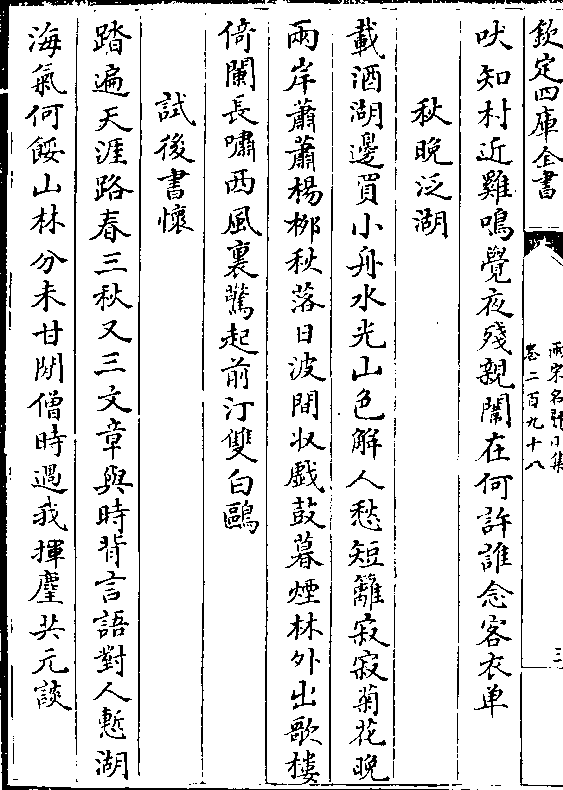 欽定四庫全書
兩宋名賢小集
卷二百九十八
三
吠知村近雞鳴覺夜殘親闈在何許誰念客衣单
秋晚泛湖
載酒湖邊買小舟水光山色解人愁短籬寂寂菊花晚
兩岸蕭蕭楊栁秋落日波間収戯鼓暮煙林外出歌樓
倚闌長嘯西風裏驚起前汀雙白鷗
試後書懷
踏遍天涯路春三秋又三文章與時背言語對人慙湖
海氣何餒山林分未甘閒僧時過我揮麈共元談